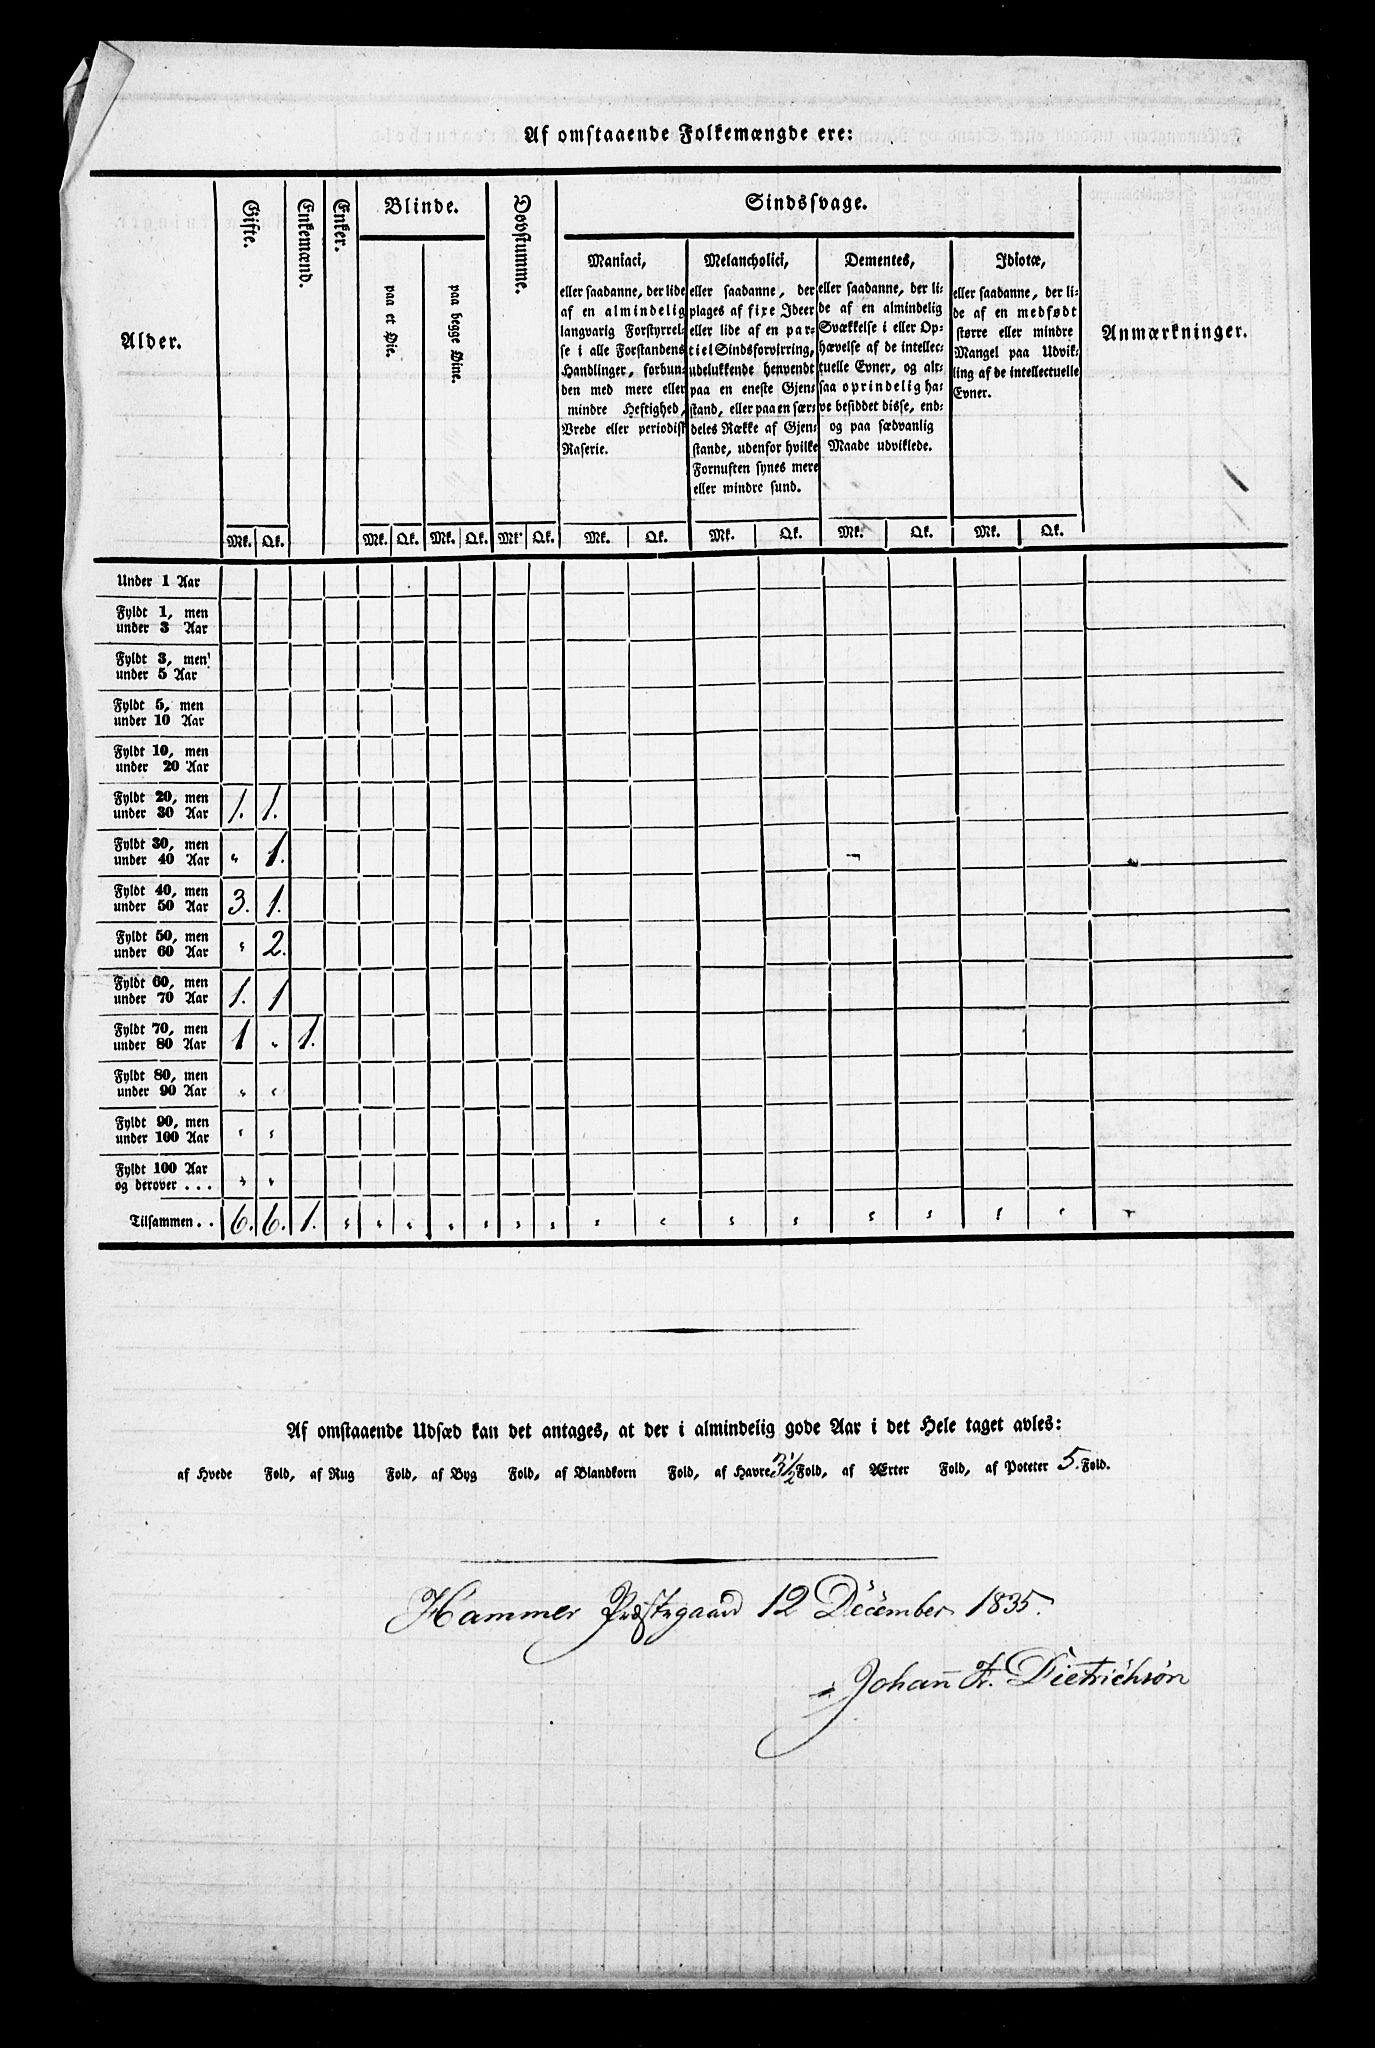 Af omstaaende Folkemængde ere:
Alder.
Gifte.
Enkemænd.
Enker.
Blinde.
paa et Øie.
paa begge Øine.
Døvstumme.
Sindssvage.
Maniaci,
eller saadanne, der lide
af en almindelig
langvarig Forstyrrel-
se i alle Forstandens
Handlinger, forbun-
den med mere eller
mindre Heftighed,
Vrede eller periodisk
Raserie.
Melancholici,
eller saadanne, der
plages af fixe Ideer
eller lide af en par-
tiel Sindsforvirring,
udelukkende henvendt
paa en eneste Gjen-
stand, eller paa en sær-
deles Række af Gjen-
stande, udenfor hvilke
Fornuften synes mere
eller mindre sund.
Dementes,
eller saadanne, der li-
de af en almindelig
Svækkelse i eller Op-
hævelse af de intellec-
tuelle Evner, og alt-
saa oprindelig ha-
ve besiddet disse, end-
og paa sædvanlig
Maade udviklede.
Idiotæ,
eller saadanne, der li-
de af en medfødt
større eller mindre
Mangel paa Udvik-
ling af de intellectuelle
Evner.
Anmærkninger.
Mk. Qk. Mk. Qk. Mk. Qk. Mk. Qk. Mk. Qk. Mk. Qk. Mk. Qk. Mk. Qk.
Under 1 Aar
Fyldt 1, men
under 3 Aar
Fyldt 3, men
under 5 Aar
Fyldt 5, men
under 10 Aar
Fyldt 10, men
under 20 Aar
Fyldt 20, men
under 30 Aar 1. 1.
Fyldt 30, men
under 40 Aar " 1.
Fyldt 40, men
under 50 Aar 3. 1.
Fyldt 50, men
under 60 Aar " 2.
Fyldt 60, men
under 70 Aar 1. 1
Fyldt 70, men
under 80 Aar 1 " 1.
Fyldt 80, men
under 90 Aar " "
Fyldt 90, men
under 100 Aar " "
Fyldt 100 Aar
og derover . . . " "
Tilsammen . . 6. 6. 1. " " " " " " " " " " " " " " " "
Af omstaaende Udsæd kan det antages, at der i almindelig gode Aar i det Hele taget avles:
af Hvede Fold, af Rug Fold, af Byg Fold, af Blandkorn Fold, af Havre 3½ Fold, af Ærter Fold, af Poteter 5. Fold.
Hammer Præstegaard 12 December 1835.
Johan Fr. Dietrichson